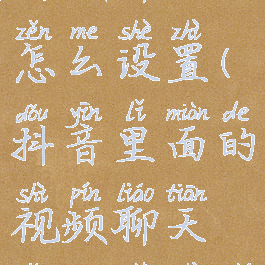 zěn me shè zhì
怎么设置(
dǒu yīn lǐ miàn de
抖音里面的
shì pín liáo tiān
视频聊天